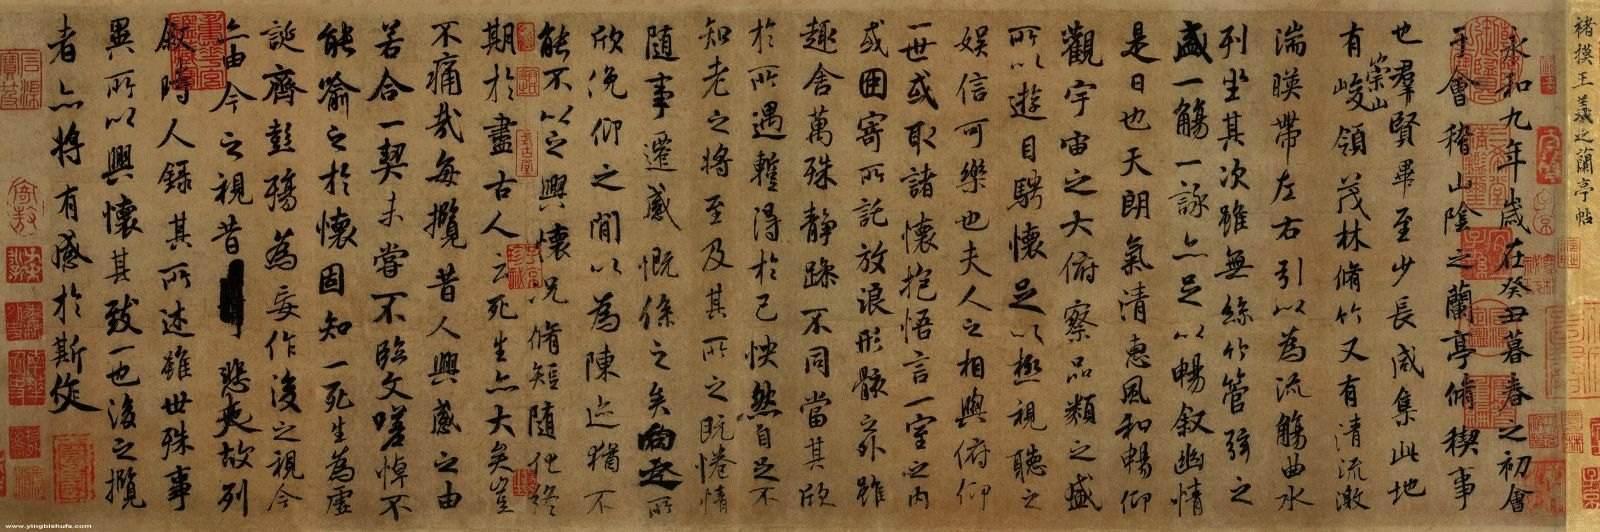 褚摸王羲之蘭亭帖
永和九年歲在癸丑暮春之初會
于會稽山陰之蘭亭脩禊事
也羣賢畢至少長咸集此地
有崇山峻領茂林脩竹又有清流激
湍暎帶左右引以為流觴曲水
列坐其次雖無絲竹管弦之
盛一觴一詠亦足以暢敘幽情
是日也天朗氣清惠風和暢仰
觀宇宙之大俯察品類之盛
所以遊目騁懷足以極視聽之
娛信可樂也夫人之相與俯仰
一世或取諸懷抱悟言一室之內
或因寄所託放浪形骸之外雖
趣舍萬殊靜躁不同當其欣
於所遇蹔得於己怏然自足不
知老之將至及其所之既惓情
隨事遷感慨係之矣向之所
欣俛仰之間以為陳迹猶不
能不以之興懷況脩短隨化終
期於盡古人云死生亦大矣豈
不痛哉每攬昔人興感之由
若合一契未嘗不臨文嗟悼不
能喻之於懷固知一死生為虛
誕齊彭殤為妄作後之視今
亦由今之視昔悲夫故列
敘時人錄其所述雖世殊事
異所以興懷其致一也後之攬
者亦將有感於斯
www.yingbishufa.com